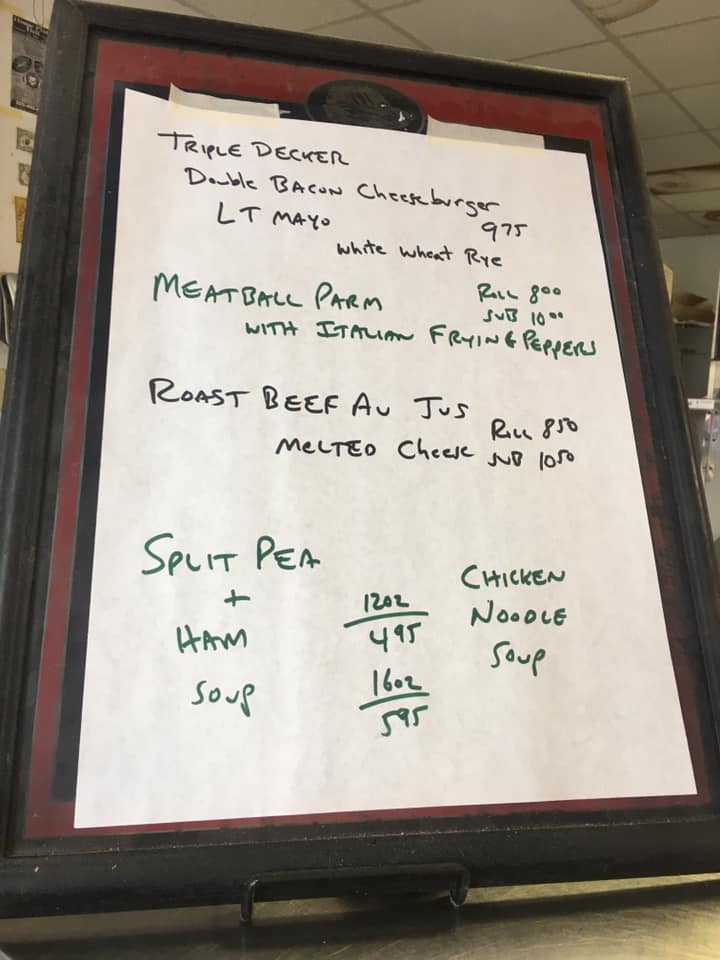 TRIPLE DECKER
Double BACON Cheeseburger
LT MAYO 975
white wheat Rye
MEATBALL PARM Roll 800
SUB 1000
WITH ITALIAN FRYING PEPPERS
ROAST BEEF AU JUS
Roll 850
MELTED Cheese SUB 1050
SPLIT PEA
+
HAM
SOUP
12oz
495
16oz
595
CHICKEN
NOODLE
Soup